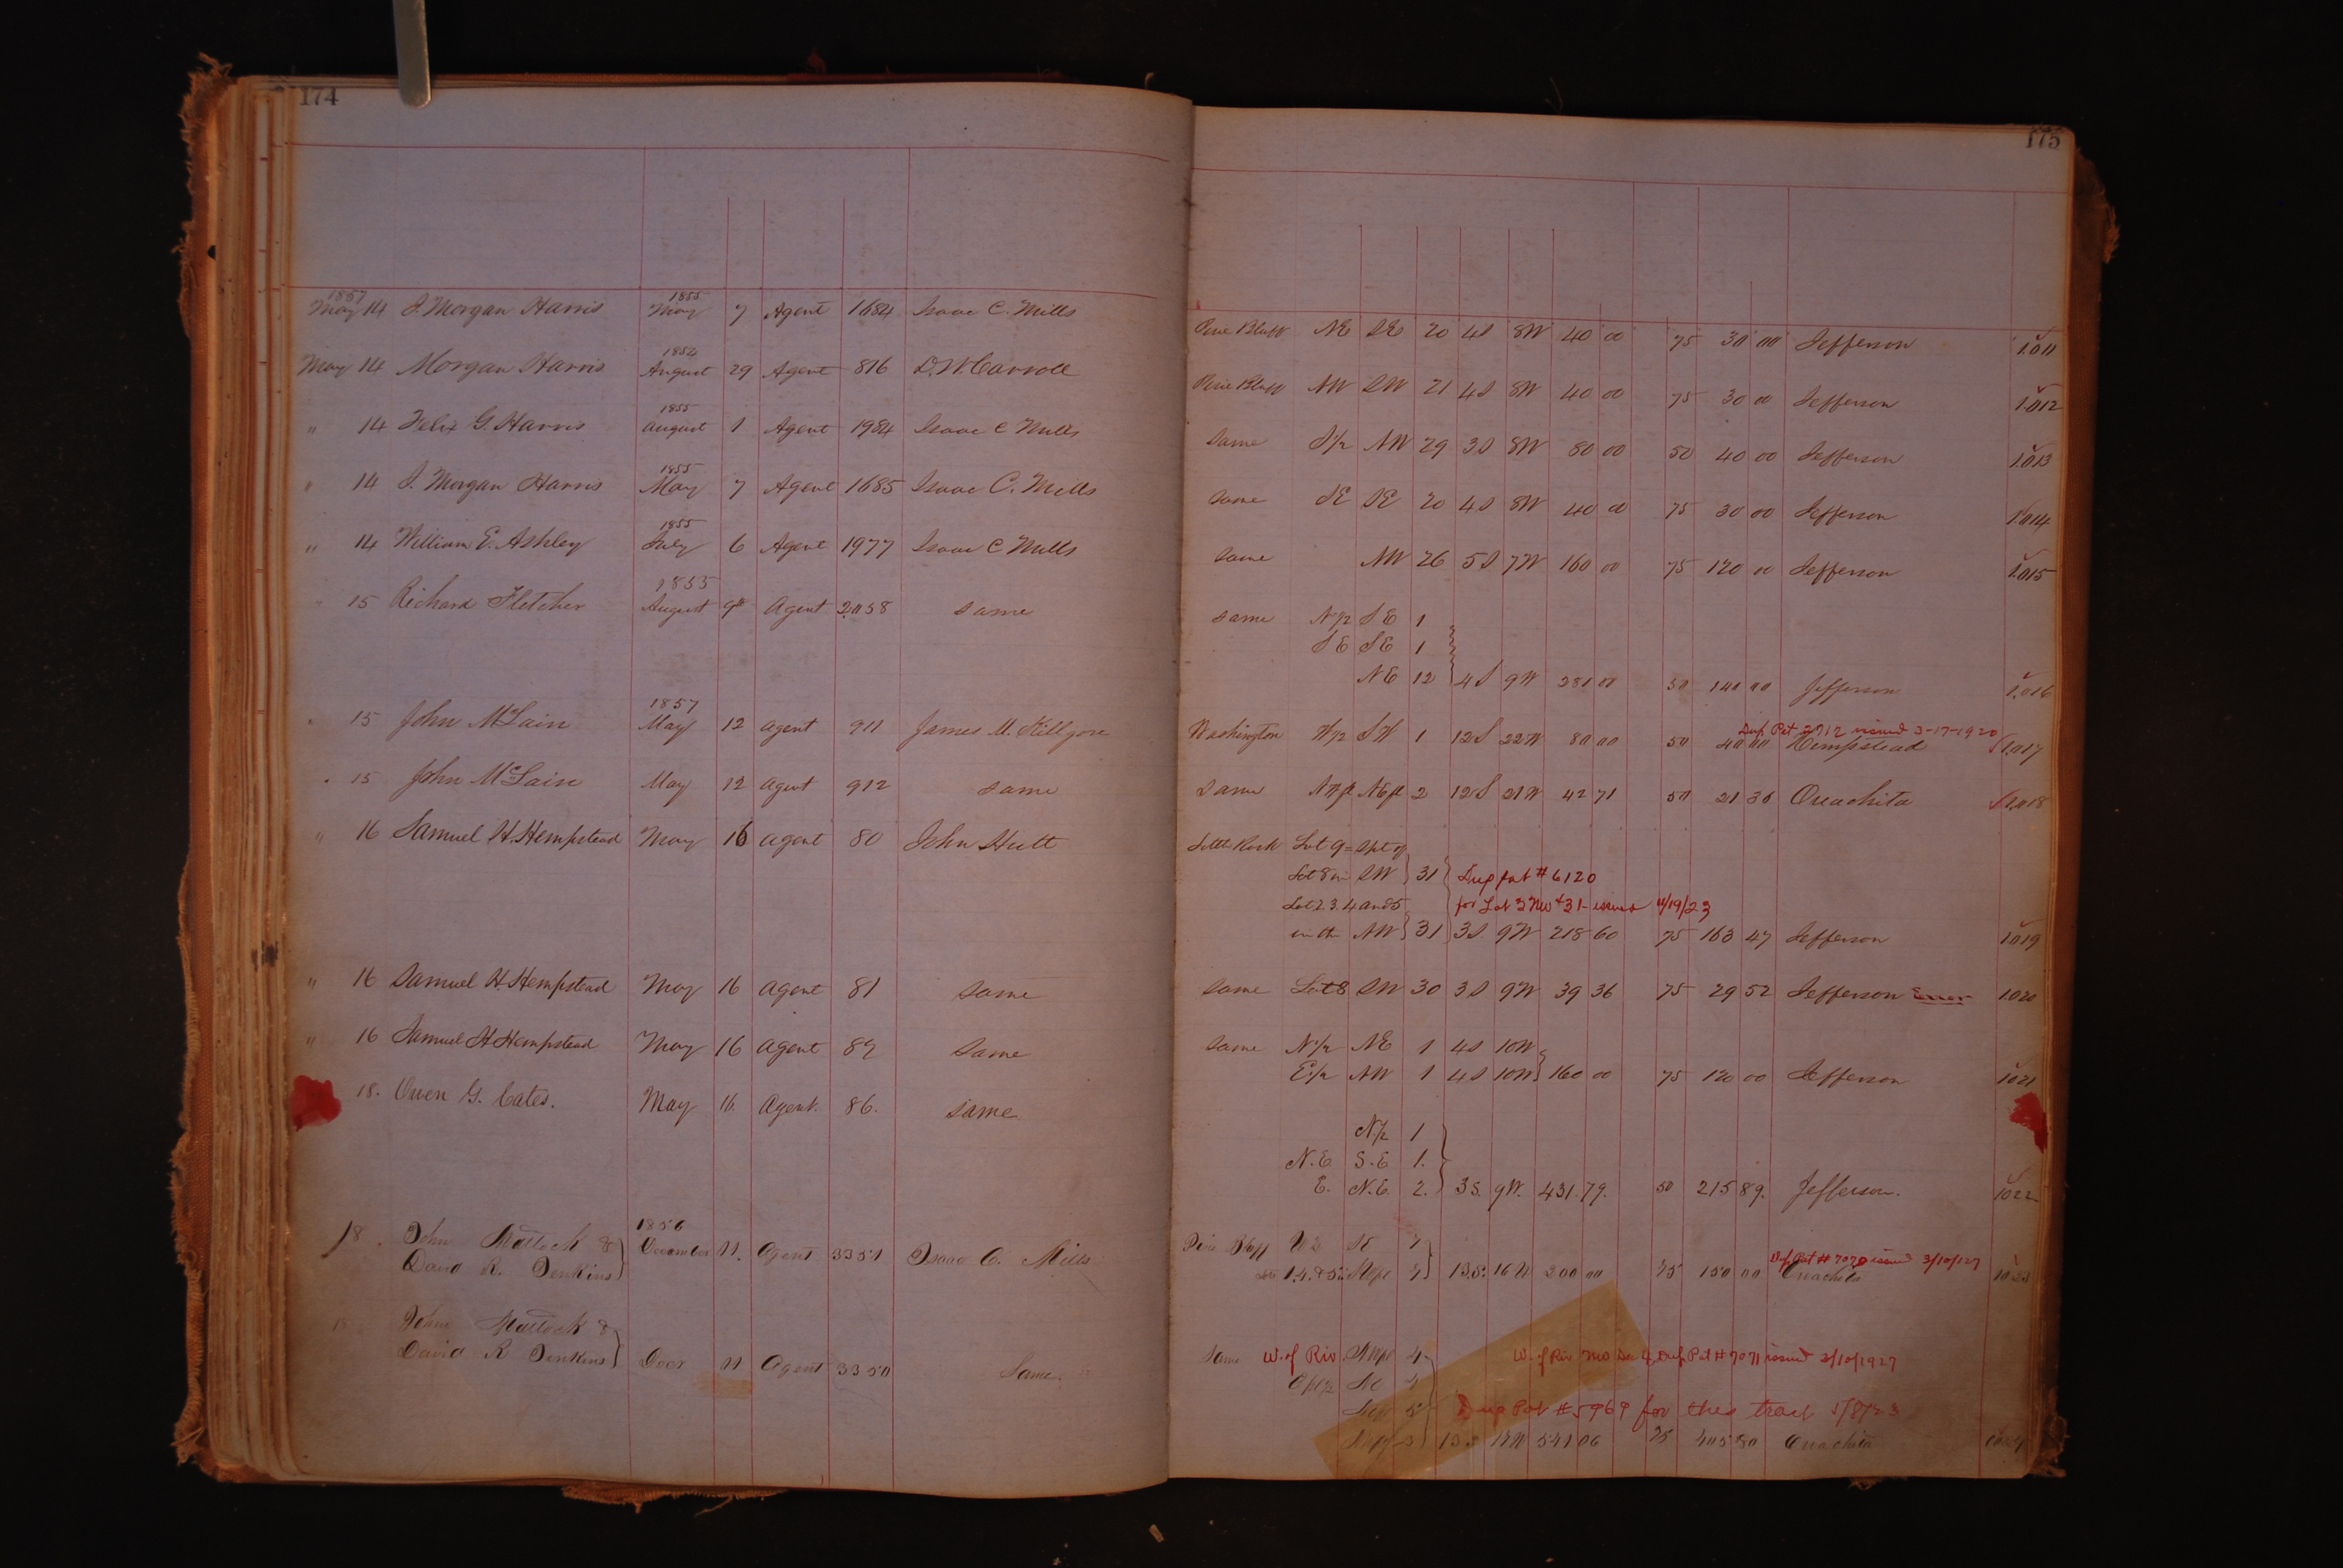 174
1857
May 14 J. Morgan Harris 1855 May 7 Agent 1684 Isaac C. Mills
May 14 Morgan Harris 1854 August 29 Agent 816 D. W. Carroll
" 14 Felix G. Harris 1855 August 1 Agent 1984 Isaac C Mills
" 14 J. Morgan Harris 1855 May 7 Agent 1685 Isaac C. Mills
" 14 William E. Ashley 1855 July 6 Agent 1977 Isaac C Mills
" 15 Richard Fletcher 1855 August Agent 2058 same
" 15 John McLain 1857 May 12 Agent 911 James M. Killgore
" 15 John McLain May 12 Agent 912 same
" 16 Samuel H. Hempstead May 16 Agent 80 John Hutt
" 16 Samuel H. Hempstead May 16 Agent 81 same
" 16 Samuel H Hempstead May 16 Agent 82 same
18. Owen G. Cates. May 16. Agent. 86. same
18 John Matlock & 1856
David R. Jenkins December 11. Agent 3351 Isaac C. Mills
18 John Matlock &
David R Jenkins Decr 11 Agent 3350 Same
175
Pine Bluff NE SE 20 4S 8W 40 00 75 30 00 Jefferson 1.011
Pine Bluff NW SW 21 4S 8W 40 00 75 30 00 Jefferson 1.012
same S/2 NW 29 3S 8W 80 00 50 40 00 Jefferson 1.013
same SE SE 20 4S 8W 40 00 75 30 00 Jefferson 1.014
same NW 26 5S 7W 160 00 75 120 00 Jefferson 1.015
same N/2 SE 1
SE SE 1
NE 12 4S 9W 280 00 50 140 00 Jefferson 1.016
Dup Pat 2712 issued 3-17-1920
Washington W/2 SW 1 12S 22W 80 00 50 40 00 Hempstead 1.017
same 2 12S 21W 42 71 50 21 36 Ouachita 1.018
Little Rock Lot 9 = Spt of
Lot 8 in SW 31 Dup pat # 6120
Lot 2. 3. 4 and 5 for Lot 3 NW 31 issued 4/19/23
in the NW 31 3S 9W 218 60 75 163 47 Jefferson 1.019
same Lot 8 SW 30 3S 9W 39 36 75 29 52 Jefferson Error 1.020
same N/2 NE 1 4S 10W
E/2 NW 1 4S 10W 160 00 75 120 00 Jefferson 1021
N/2 1
N.E S.E 1.
E. N.E. 2. 3S. 9W. 431.79. 50 215 89. Jefferson. 1022
Pine Bluff W2 SE
Dup Pat # 7070 issued 3/10/27
1.4.&5. 13.S. 16W 200 00 75 150 00 Ouachita 1023
Same W. of Riv W. of Riv Dup Pat # 7071 issued 3/10/1927
Dup Pat # 5969 for this tract 1/8/23
541 06 75 405 80 Ouachita